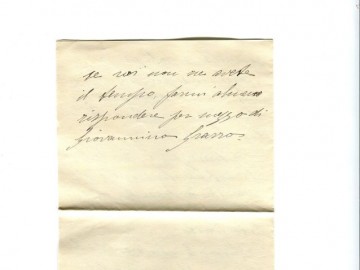 se voi non ne avete
il tempo, farmi almeno
rispondere per mezzo di
Giovannino Grasso.